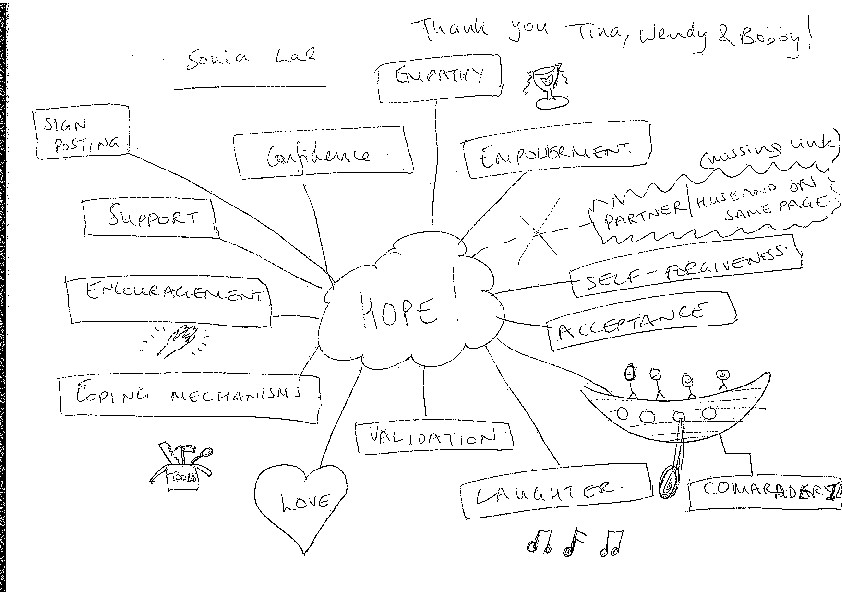 Thank you Tina, Wendy & Bobby!
Sonia Lal
EMPATHY
SIGN
POSTING
Confidence
EMPOWERMENT
(missing link)
PARTNER/HUSBAND ON
SAME PAGE
SUPPORT
SELF-FORGIVENESS
ENCOURAGEMENT
HOPE!
ACCEPTANCE
COPING MECHANISMS
VALIDATION
TOOLS
LOVE
LAUGHTER
COMARADERY